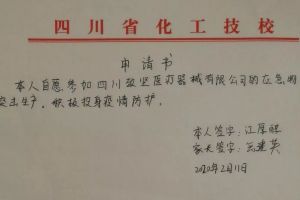 四川省化工技校
申请书
本人自愿参加四川致坚医疗器械有限公司的应急
突击生产，积极投身疫情防护。
本人签字：江厚
家长签字：英
2020年2月11日